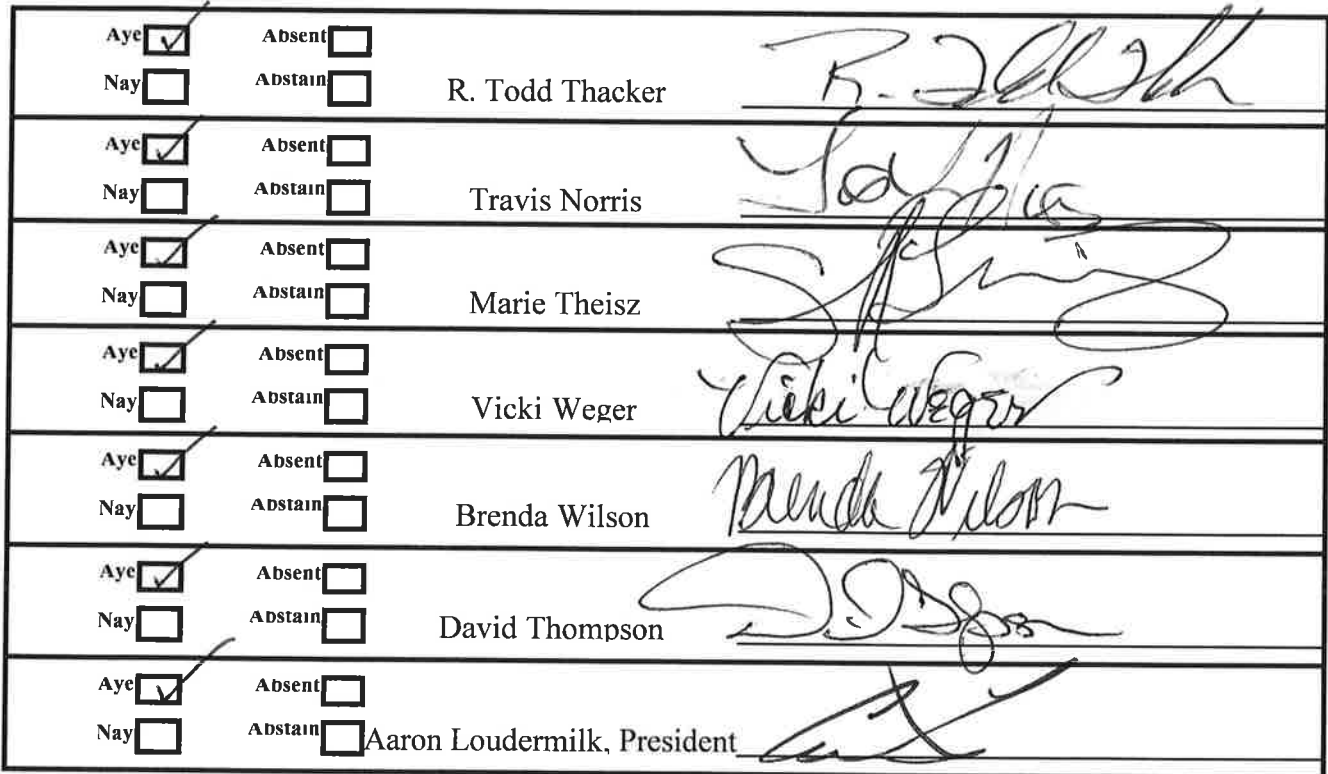 Aye Absent
Nay Abstain R. Todd Thacker R. Todd Thacker
Aye Absent
Nay Abstain Travis Norris
Aye Absent
Nay Abstain Marie Theisz
Aye Absent
Nay Abstain Vicki Weger Vicki Weger
Aye Absent
Nay Abstain Brenda Wilson Brenda Wilson
Aye Absent
Nay Abstain David Thompson
Aye Absent
Nay Abstain Aaron Loudermilk, President